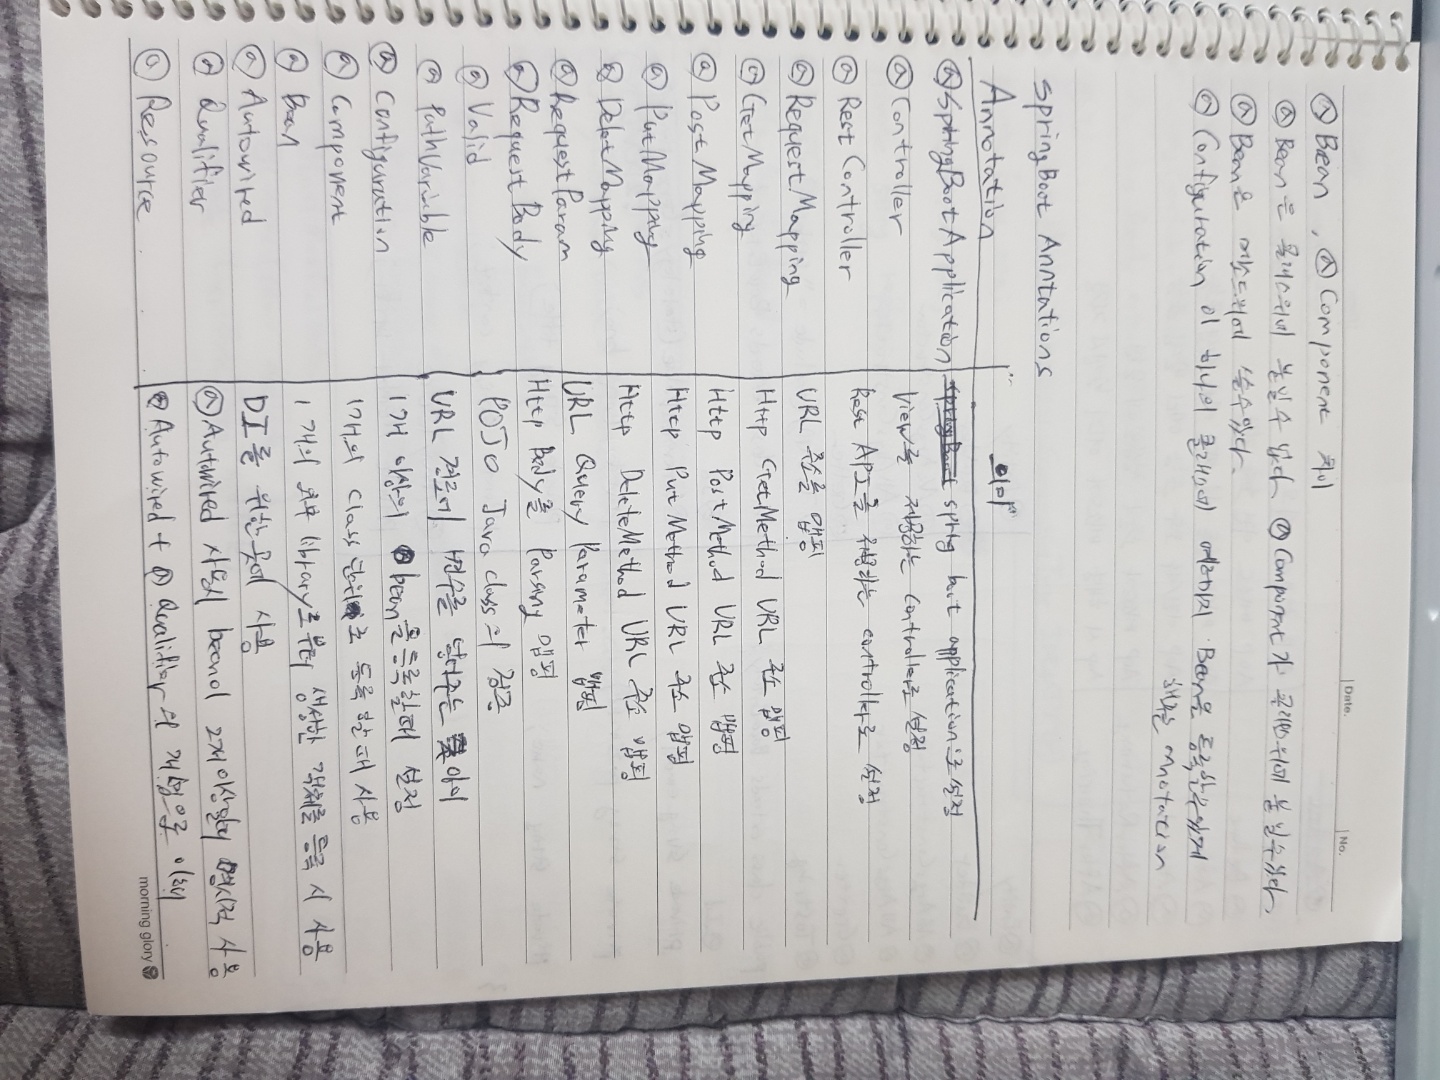 Date.
No.
@Bean, @Component 차이
@Bean은 클래스위에 붙일수 없다 @Component가 클래스위에 붙일수있다.
@Bean은 메소드위에 쓸수있다.
@Configuration 이 하나의 클래스에 여러가지 Bean을 등록할수있게
해주는 annotation
springBoot Anntations
Annotation 의미
@SpringBootApplication spring boot application으로 설정
@Controller View를 제공하는 controller로 설정
@RestController Rest API를 제공하는 controller로 설정
@RequestMapping URL 주소를 맵핑
@GetMapping Http GetMethod URL 주소 맵핑
@PostMapping Http PostMethod URL 주소 맵핑
@PutMapping Http PutMethod URL 주소 맵핑
@DeletMapping Http DeleteMethod URL 주소 맵핑
@RequestParam URL Query Parameter 맵핑
@RequestBody Http Body를 Parsing 맵핑
@Valid POJO Java class의 검증
@PathVarible URL 경로에 변수를 넣어주는
@Configuration 1개 이상의 bean을 등록할때 설정
@Component 1개의 class 단위로 등록 할 때 사용
@Bean 1개의 외부 library로부터 생성한 객체를 등록 시 사용
@Autowired DI를 위한곳에 사용
@Qualifier @Autowired 사용시 bean이 2개이상일때 명시적 사용
@Resource @Autowired + @Qualifier의 개념으로 이해
morning glory